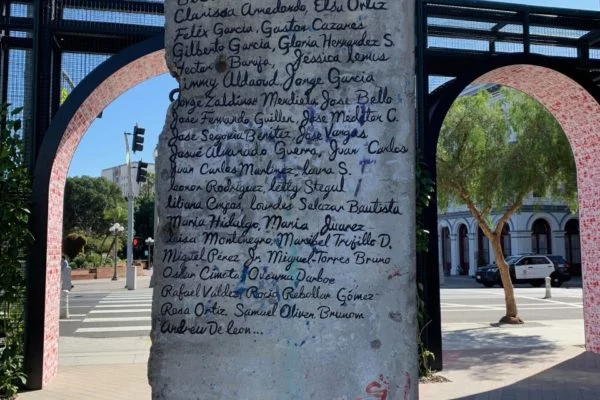 Clarissa Arredondo, Elsu Ortiz
Felix Garcia, Guston Cazares
Gilberto Garcia, Gloria Hernandez S.
Hector Barajas, Jessica Lemus
Jimmy Aldaoud Jorge Garcia
Jorge Zaldivar Mendieta Jose Bello
Jose Fernando Guillen Jose Medellon C.
Jose Segovia Benitez Jose Vargas
Josue Alvarado Guerra, Juan Carlos
Juan Carlos Martinez, Laura S.
Leonor Rodriguez, Letty Stegul
Liliana Campos, Lourdes Salazar Bautista
Maria Hidalgo, Maria Juarez
Luisa Montenegro, Maribel Trujillo D.
Miguel Pérez Jr. Miguel Torres Bruno
Oscar Cimeta Darboe
Rafael Valdez, Rocio Rebollar Gómez
Rosa Ortiz, Samuel Oliver Brunom
Andrew De leon...